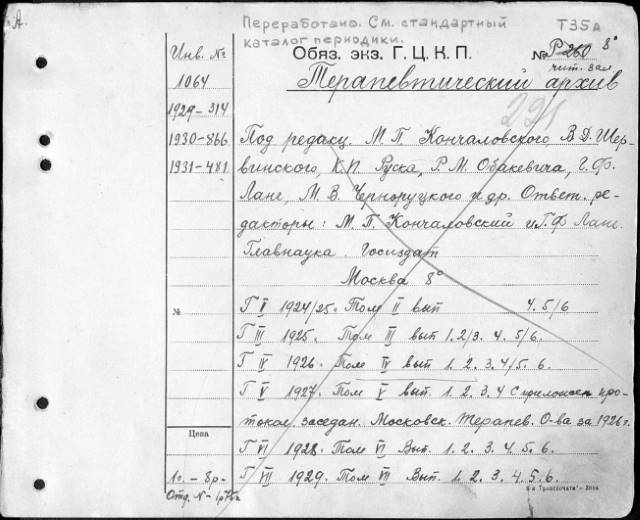 А.
Переработано. См. стандартный
каталог периодики.
Т35А
Обяз. экз. Г.Ц.К.П. № Р260 8°
чит. зал
Инв. №
Терапевтический архив
1064
291
1929-314
1930-866 Под редакц. М. П. Кончаловского, В. Д. Шер-
1931-481 винского, К. П. Руска, Р. М. Обакевича, Г. Ф.
Ланг, М. В. Черноруцкого и др. Ответ. ре-
дакторы: М. П. Кончаловский и Г. Ф. Ланг.
Главнаука. Госиздат
Москва 8°
№ Г I 1924/25. Том II вып 4. 5/6
Г III 1925. Том III вып 1. 2/3. 4. 5/6.
Г IV 1926. Том IV вып 1. 2. 3. 4/5. 6.
Г V 1927. Том V вып. 1. 2. 3. 4 С приложен про-
токол. заседан. Московск. Терапев. О-ва за 1926 г.
Цена
Г VI 1928. Том VI Вып. 1. 2. 3. 4. 5. 6.
1г. - 8р. Г VII 1929. Том VII Вып. 1. 2. 3. 4. 5. 6.
Отд. №